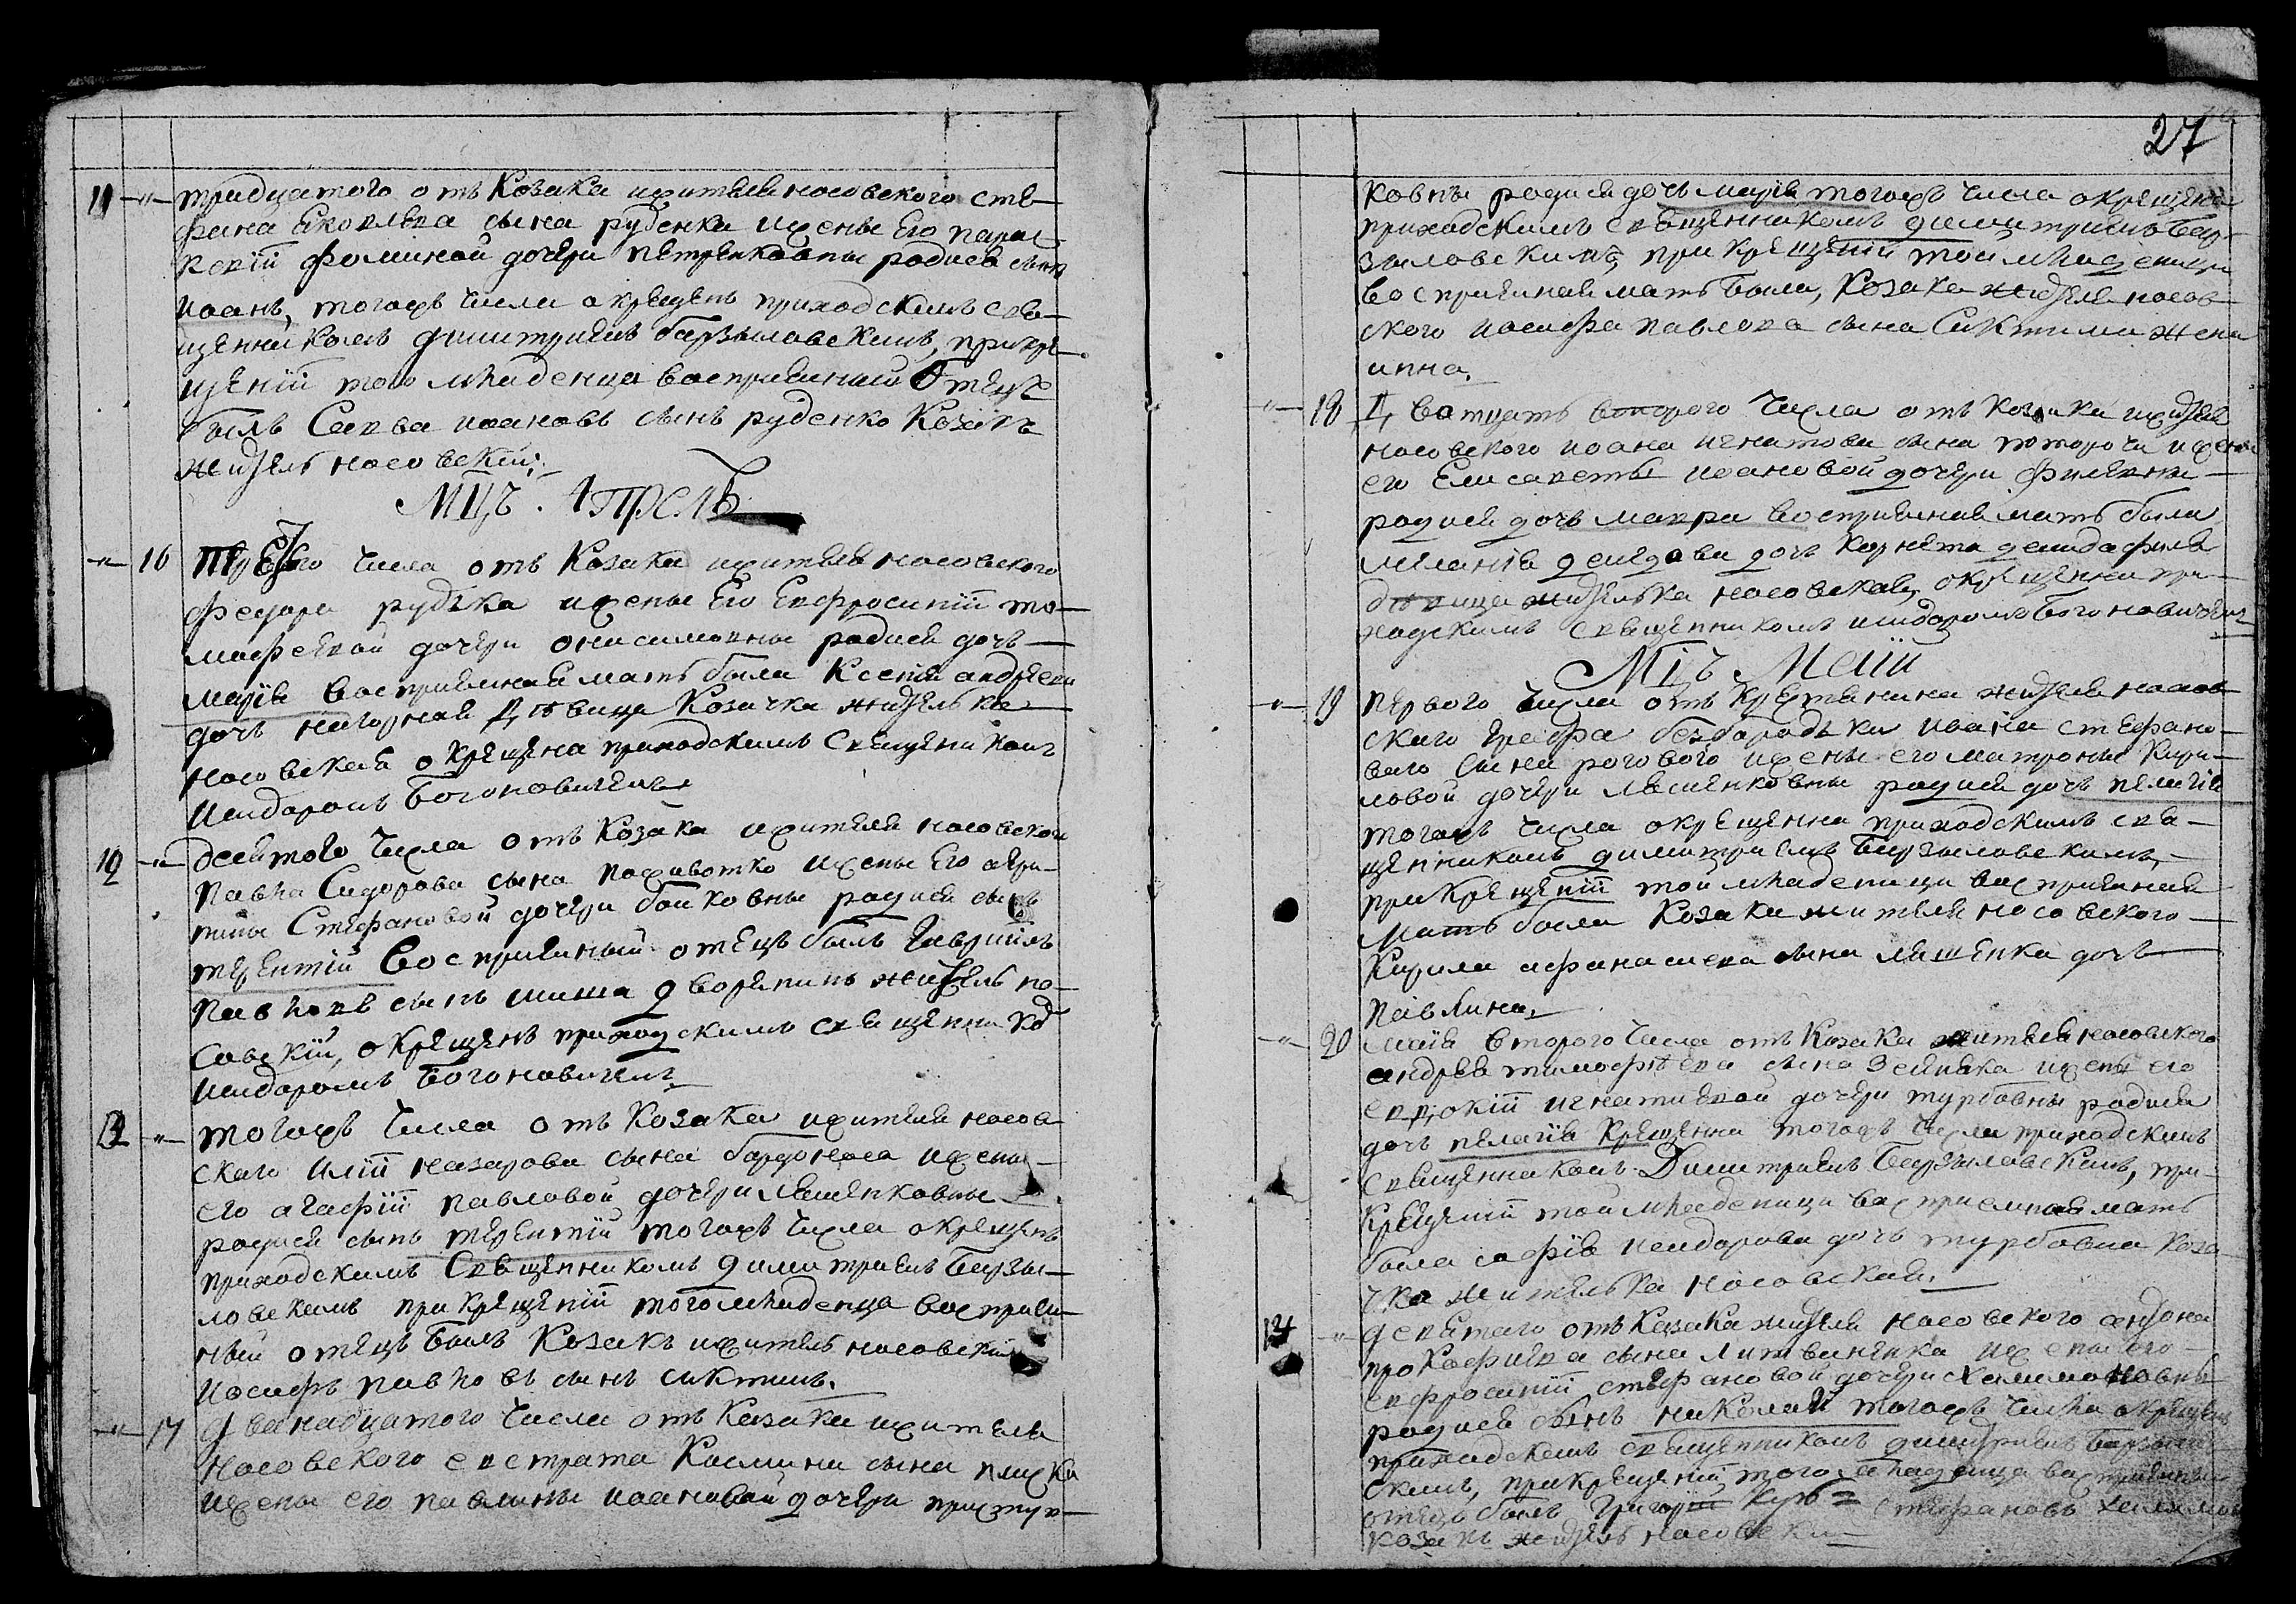 11 тридцатого отъ Козака ижителя носовского сте-
фана Яковлева сына руденка ижены Его парас-
кевiи фоминой дочери петренковны родився сынъ
иоанъ, тогожъ числа окрещенъ приходскимъ свя-
щенникомъ димитриемъ барзиловскимъ, прикре-
щенiи того младенца восприемний Отецъ
былъ Савва иоановъ сынъ руденко Козакъ
житель носовскiй:
Мцъ. Апрель
16 третого числа отъ Козака ижителя носовского
федора рудька ижены Его Евфросинiи ти-
мофеевой дочери онисимовны родися дочь
марiя восприемная мать была Ксенiя андреева
дочь нагорная Девица Козачка жителька
носовская окрещена приходскимъ Священикомъ
Исидоромъ Богоновичемъ
12 десятого числа отъ Козака ижителя носовского
павла Сидорова сына поживотко ижены Его
Стефановой дочери бойковны родися сынъ
терентiй Восприемный отецъ былъ Гаврiилъ
Павловъ сынъ шиша дворянинъ житель но-
совскiй, окрещенъ приходскимъ священнико
Исидоромъ Богоновичемъ
13 тогожъ числа отъ Козака ижителя носов
ского Илiи назарова сына бардоноса ижены
его агафiи павловой дочери лященковны
родися сынъ терентiй тогожъ числа окрещенъ
приходскимъ Священникомъ димитриемъ Барзи-
ловскимъ при крещенiи того младенца восприем-
ний отецъ былъ Козакъ ижитель носовскiй
Иосифъ павловъ сынъ
17 дванадцатого числа отъ Козака ижителя
Носовского евстрата Космины сына
ижены его павлины иоановой дочери приступ-
27
ковны родися дочь марiя тогожъ числа окрещена
приходскимъ священникомъ димитриемъ Бар-
зиловскимъ, при крещенiи той младеници
восприемная мать была, Козака жителя носов
ского иосифа павлова сына жена
анна.
18 Двотцать второго числа отъ козака ижителя
носовского иоана игнатова сына потороча ижены
его Елисаветы иоановой дочери
родися дочь мавра восприемная мать была
меланiя демидова дочь Корнета демида
девица жителька носовская, окрещенна при-
ходскимъ священникомъ исидоромъ Богоновичемъ
Мцъ Маiй
19 первого числа отъ крестянина жителя носов
ского графа безбородька ивана стефано-
вого сына рогового ижены его матроны Кири-
ловой дочери лященковны родися дочь пелагiя
тогожъ числа окрещенна приходскимъ свя-
щенникомъ димитриемъ Барзиловскимъ,
при крещенiи той младеници восприемная
мать была Козака жителя носовского
Кирила афанасиева сына лященка дочь
павлина,
20 маiя второго числа отъ Козака жителя носовского
андрея тимофеева сына ижены его
евдокiи игнатиевой дочери турбовны родися
дочь пелагiя Крещенна тогожъ числа приходскимъ
священникомъ Димитриемъ Барзиловскимъ, при
Крещенiи той младеници восприемная мать
была софiя исидорова дочь турбовна Коза-
чка жителька носовская.
14 девятаго отъ Козака жителя носовского андона
прокофиева сына литвиненка ижены его
евфросинiи стефановой дочери
родися сынъ николай тогожъ числа окрещенъ
приходскимъ священникомъ димитриемъ Барзилов
скимъ, прикрещенiи того младенца восприемный
отецъ былъ Григорiй Стефановъ
козакъ житель носовски